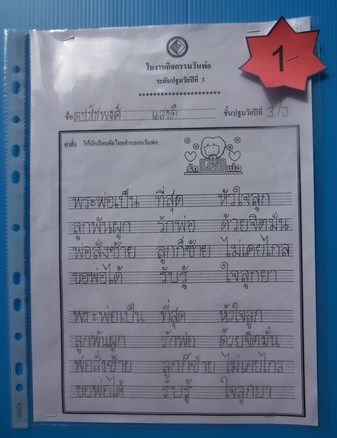 1
ใบงานกิจกรรมวันพ่อ
ระดับปฐมวัยปีที่ 3
ชื่อ ชั้นปฐมวัยปีที่ 3/3
คำสั่ง ให้นักเรียนคัดไทยคำกลอนวันพ่อ
รัก พ่อ
พระพ่อเป็น ที่สุด หัวใจลูก
ลูกพันผูก รักพ่อ ด้วยจิตมั่น
พ่อสั่งซ้าย ลูกก็ซ้าย ไม่เคยไกล
ขอพ่อได้ รับรู้ ใจลูกยา
พระพ่อเป็น ที่สุด หัวใจลูก
ลูกพันผูก รักพ่อ ด้วยจิตมั่น
พ่อสั่งซ้าย ลูกก็ซ้าย ไม่เคยไกล
ขอพ่อได้ รับรู้ ใจลูกยา